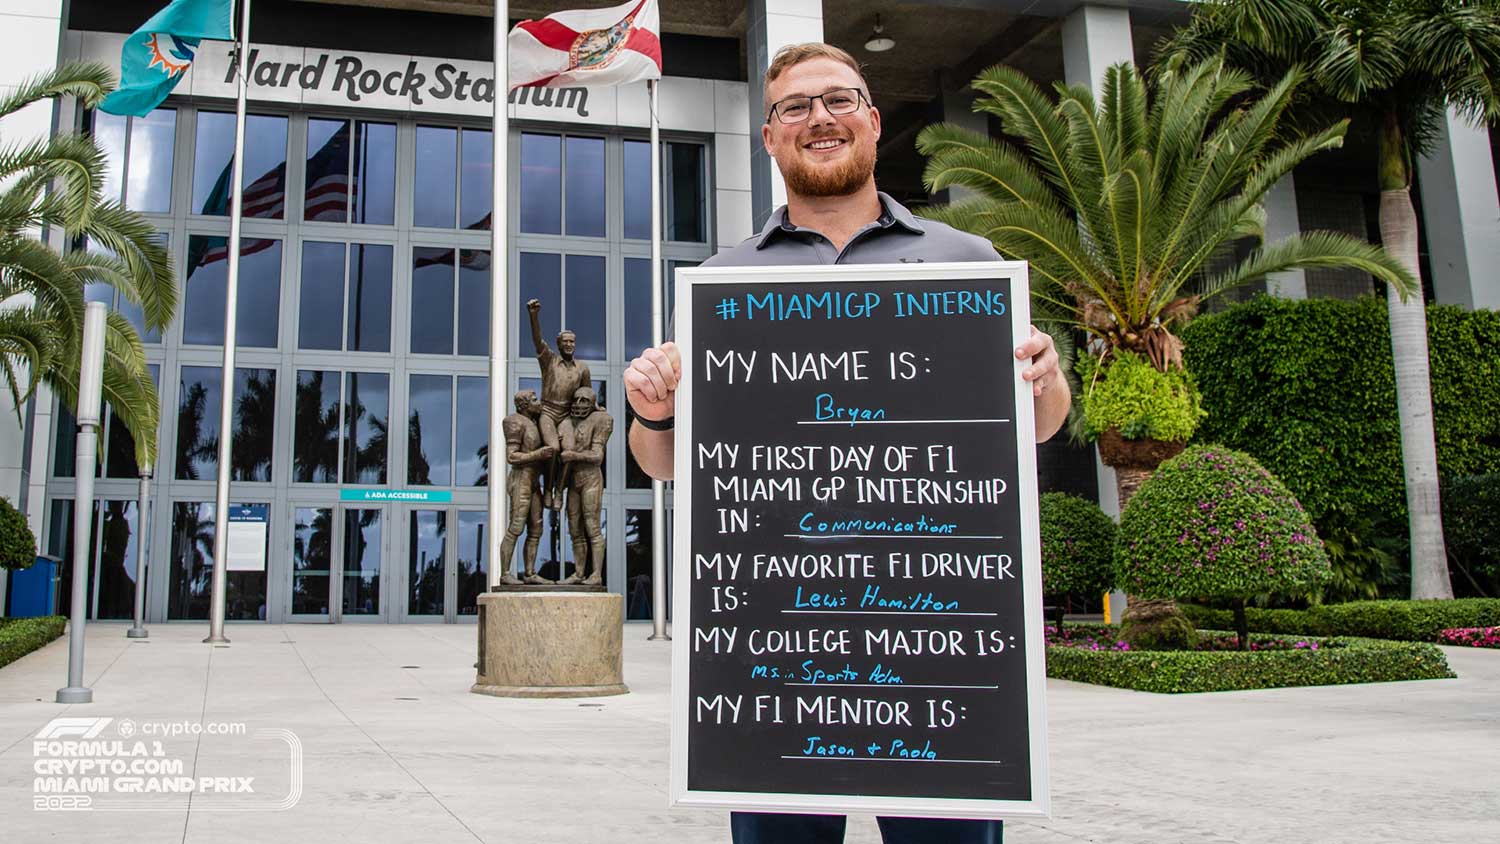 Hard Rock Stadium
ADA ACCESSIBLE
# MIAMIGP INTERNS
MY NAME IS:
Bryan
MY FIRST DAY OF F1
MIAMI GP INTERNSHIP
IN: Communications
MY FAVORITE F1 DRIVER
IS: Lewis Hamilton
MY COLLEGE MAJOR IS:
M.S. in Sports Adm.
MY F1 MENTOR IS:
Jason + Paola
F1 crypto.com
FORMULA 1
CRYPTO.COM
MIAMI GRAND PRIX
2022